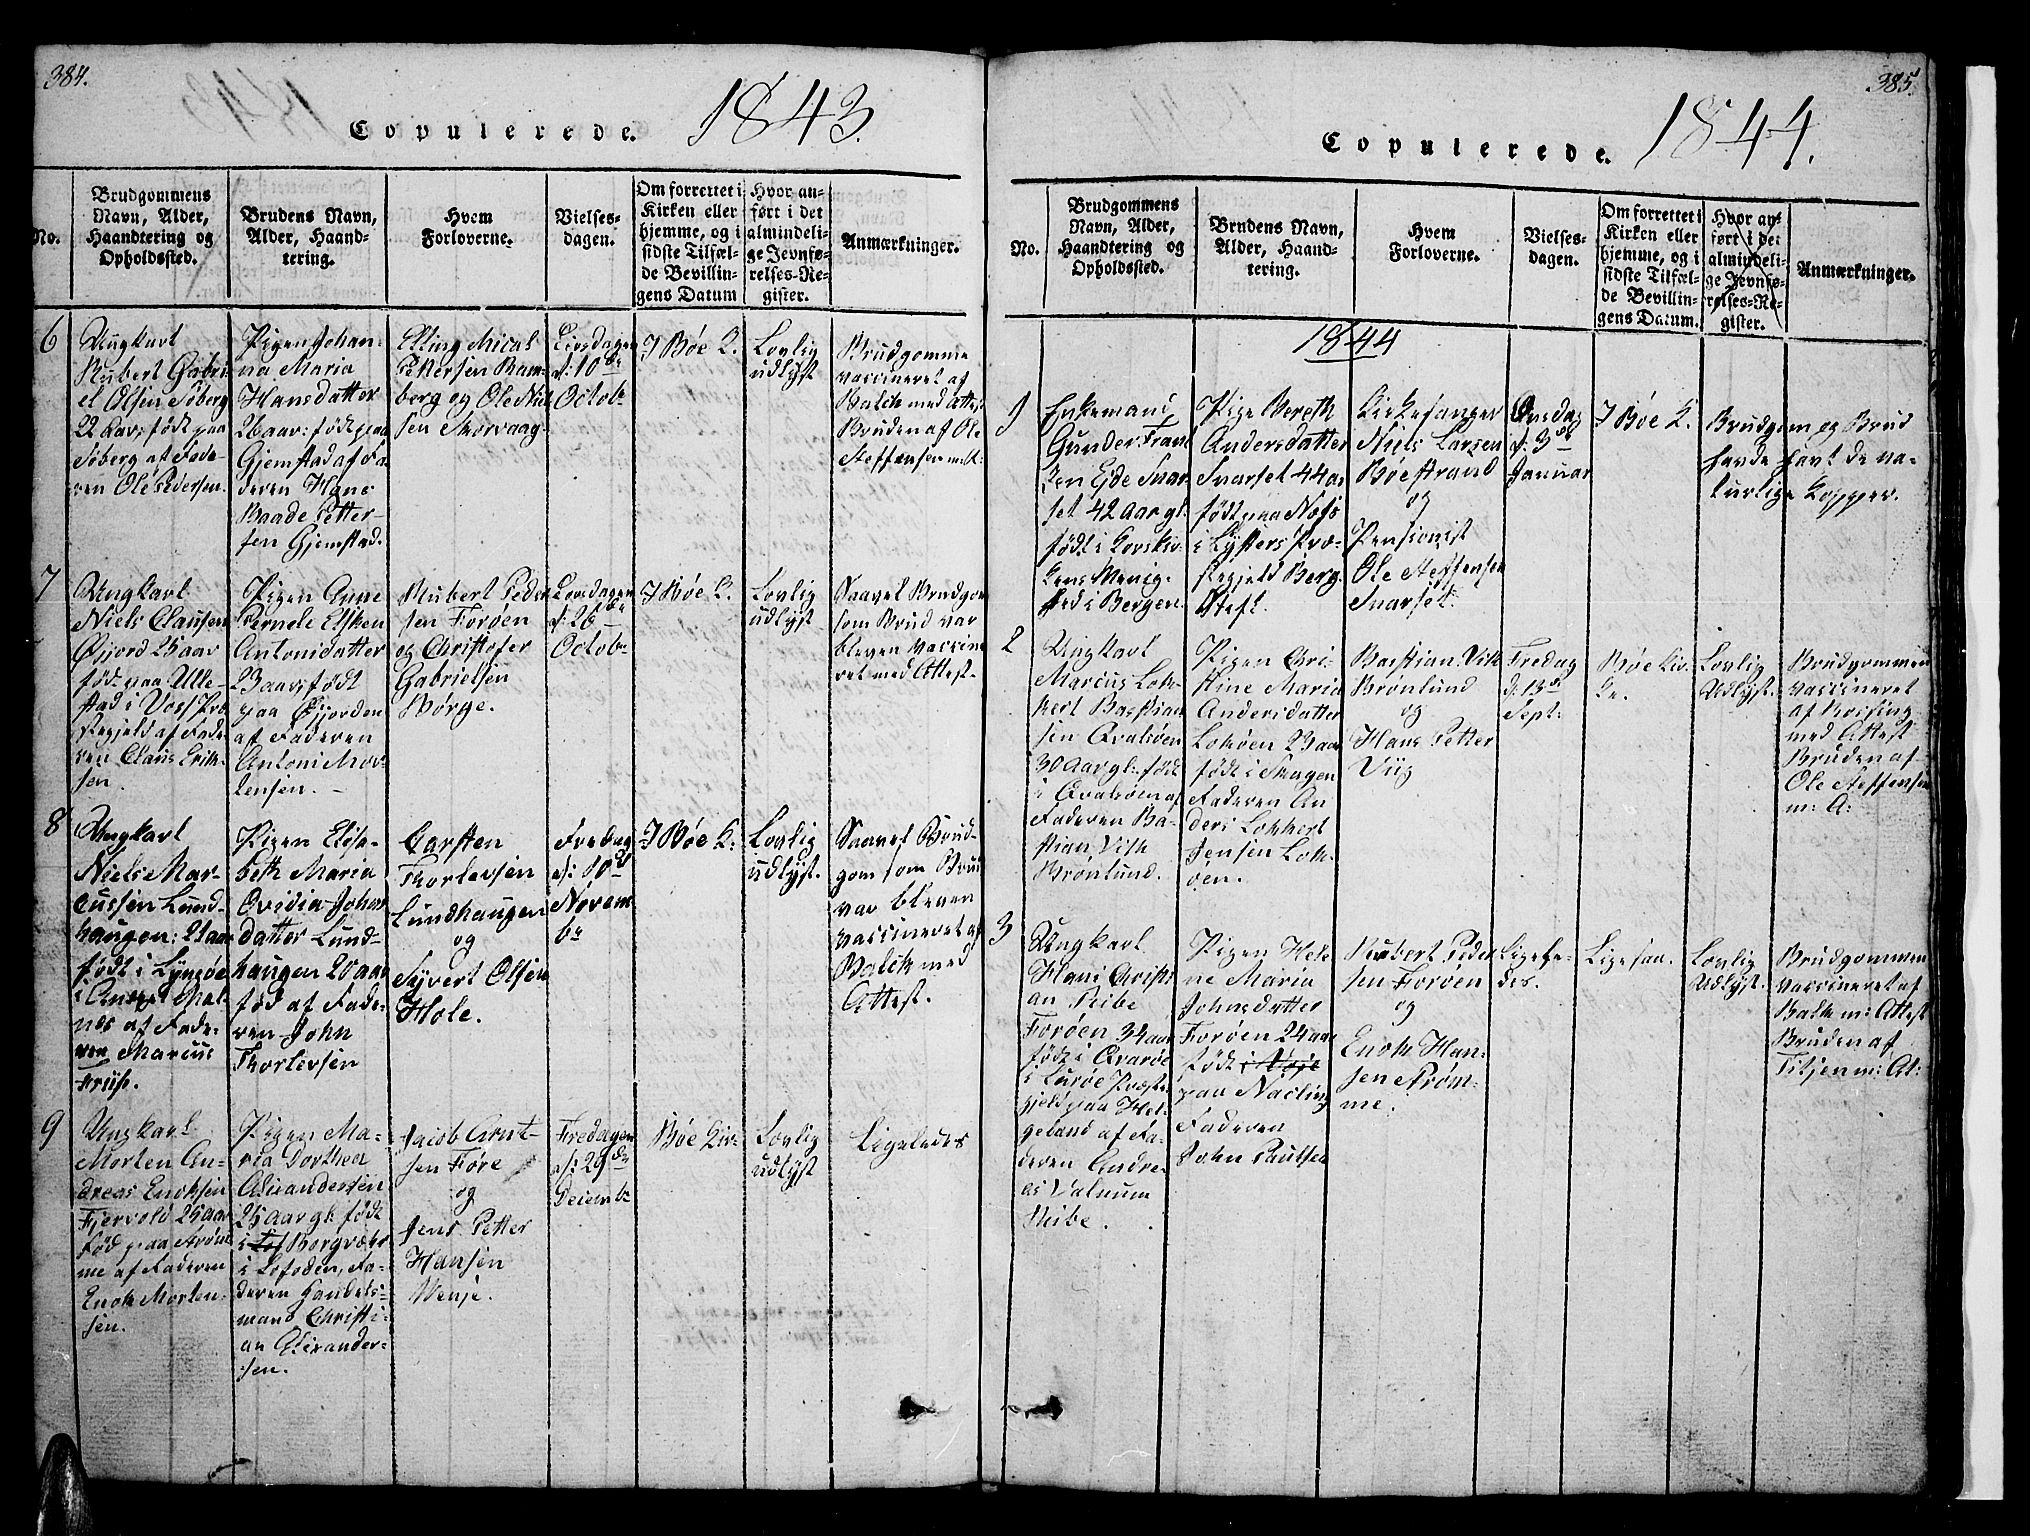 384.
Copulerede. 1843.
No.
Brudgommens
Navn, Alder,
Haandtering og
Opholdssted.
Brudens Navn,
Alder, Haand-
tering.
Hvem
Forloverne.
Vielses-
dagen.
Om forrettet i
Kirken eller
hjemme, og i
sidste Tilfæl-
de Bevillin-
gens Datum
Hvor an-
ført i det
almindeli-
ge Jevnfø-
relses-Re-
gister.
Anmærkninger.
6
Ungkarl
Rubert Gabri-
el Olsen Søberg
22 Aar, født paa
Søberg af Fade-
ren Ole Pedersen.
Pigen Johan-
na Maria
Hansdatter
26 aar: født paa
Gjemstad af Fa-
deren Hans
Baade Petter-
sen Gjemstad.
Elling Mical
Pettersen Ram-
berg og Ole Niel
sen Skorvaag
Tirsdagen
d: 10de
Octobr
I Bøe K.
Lovlig
udlyst
Brudgomme
vaccineret af
Balck med Attest
Bruden af Ole
Steffensen m: A:
7
Ungkarl
Niels Clausen
Øijord 25 aar
født paa Ulle-
stad i Voss Præ
stegjeld af Fade
ren Claus Erik-
sen.
Pigen Anne
Pernele Elsken
Antonidatter
23 aar, født
paa Øijorden
af Faderen
Antoni Mor-
tensen.
Rubert Peder
sen Forøen
og Christofer
Gabrielsen
Børge.
Torsdagen
d: 26de
Octobr
I Bøe K.
Lovlig
udlyst
Saavel Brudgom
som Brud var
bleven vaccine
ret med Attest.
8
Ungkarl
Niels Mar-
cussen Lund-
haugen: 21 aar
født i Lyngøe
i Andøe Mal-
nes af Fade-
ren Marcus
Friis.
Pigen Elisa-
beth Maria
Ovidia Johns
datter Lund-
haugen 20 aar
fød af Fade-
ren John
Thorlevsen
Carsten
Thorlevsen
Lundhaugen
og
Syvert Olsen
Hole.
Fredag
d: 10de
Novem
br
I Bøe K:
Lovlig
udlyst.
Saavel Brud-
gom som Brud
var bleven
vaccineret af
Balck med
Attest.
9
Ungkarl
Morten An-
dreas Enoksen
Fjervold 25 aar
fød paa Strøm
me af Faderen
Enok Morten-
sen.
Pigen Ma-
ria Dorthea
Alexandersen
25 Aar gl. født
i Borgvær
i Lofoden, Fa-
deren Handels-
mand Christi-
an Alexander-
sen.
Jacob Arnt-
sen Føre
og
Jens Petter
Hansen
Wenje.
Fredagen
d: 29de
Decembr
Bøe Kir:
Lovlig
udlyst
Ligeledes
385.
Copulerede. 1844.
No.
Brudgommens
Navn, Alder,
Haandtering og
Opholdssted.
Brudens Navn,
Alder, Haand-
tering.
Hvem
Forloverne.
Vielses-
dagen.
Om forrettet i
Kirken eller
hjemme, og i
sidste Tilfæl-
de Bevillin-
gens Datum.
Hvor an-
ført i det
almindeli-
ge Jevnfø-
relses-Re-
gister.
Anmærkninger.
1844
1
Enkemand
Gunder Frand
sen Eide Snar
set 42 aar gl.
født i Korskir
kens Menig-
hed i Bergen.
Pige Bereth
Andersdatter
Snarset 44 aar
født paa Næss
i Lysters Præ-
stegjeld Berg.
Stift.
Kirkesanger
Niels Larsen
Bøestrand
og
Pensionist
Ole Steffensen
Snarset.
Onsdag
d: 3de
Januar
I Bøe K.
Brudgom og Brud
havde havt de na-
turlige Kopper.
2
Ungkarl
Marcus Lok-
kert Bastian
sen Qvaløen
30 Aar gl: født
i Qvaløen af
Faderen Ba-
stian Visk
Brønlund.
Pigen Chri-
stine Maria
Andersdatter
Lokøen 23 aar
født i Skagen
Faderen An
ders Lokkert
Jensen Lok-
øen.
Bastian Visk
Brønlund
og
Hans Petter
Viig
Fredag
d: 13de
Sept:
Bøe Kir
ke.
Lovlig
Udlyst.
Brudgommen
vaccineret
af Rossing
med Attest
Bruden af
Ole Steffensen
m: A:
3
Ungkarl
Hans Christi
an Ribe
Forøen 34 aar
født i Qvarøe
i Lurøe Præste-
gjeld paa Hel-
geland af Fa-
deren Andre-
as Valnum
Ribe.
Pigen Hele
ne Maria
Johnsdatter
Forøen 24 aar
født
paa Nacling
Faderen
John Paulsen
Rubert Peder
sen Forøen
og
Enok Han-
sen Strøm-
me.
Ligele-
des.
Ligesaa.
Lovlig
Udlyst.
Brudgommen
vaccineret af
Balck m: Attest
Bruden af
Titjen m: At: